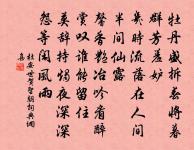 牡丹盛拆春將暮
群芳羞妒
幾時流落在人間
半開仙露
馨香艷冶吟看醉
嘆誰能留住
莫辭持燭夜深深
怨等閒風雨
杜安世賀聖朝